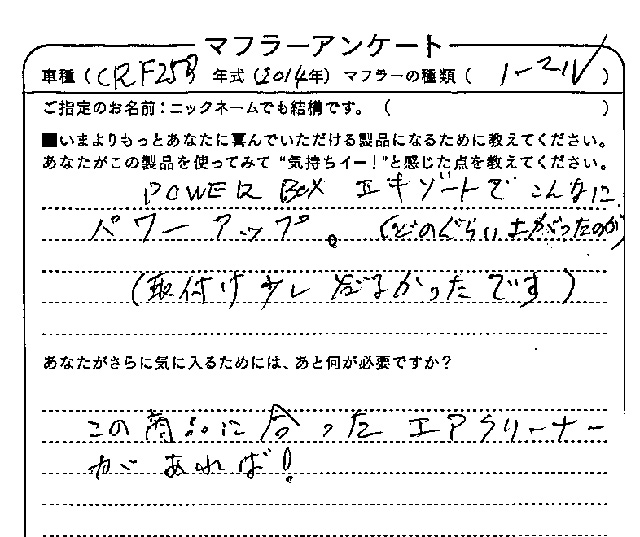 マフラーアンケート
車種(CRF25B 年式(2014年) マフラーの種類( ノーマル )
ご指定のお名前:ニックネームでも結構です。( )
■いまよりもっとあなたに喜んでいただける製品になるために教えてください。
あなたがこの製品を使ってみて“気持ちイー!”と感じた点を教えてください。
POWER BOX エキゾートで こんなに
パワーアップ。(どのぐらい上がったのか)
(取付け少し がたかったです)
あなたがさらに気に入るためには、あと何が必要ですか?
この商品に合った エアクリーナー
が あれば!